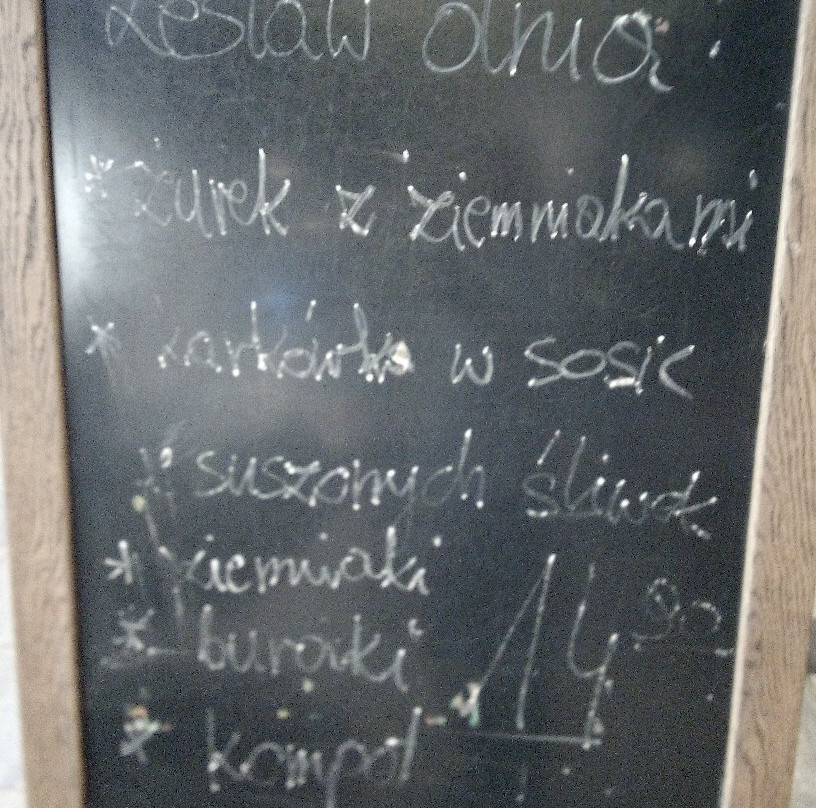 Zestaw dnia:
* żurek z ziemniakami
* karkówka w sosie
suszonych śliwek
* ziemniaki
* buraki 14 90
* kompot